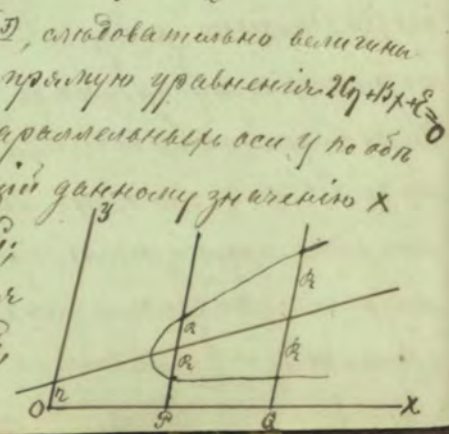 , слѣдовательно величины
прямую уравненія 2Cy+Bx+E=0
араллельныхъ оси y по обѣ
цій данному значенію x
y
R
R
R
R
n
O
P
Q
X